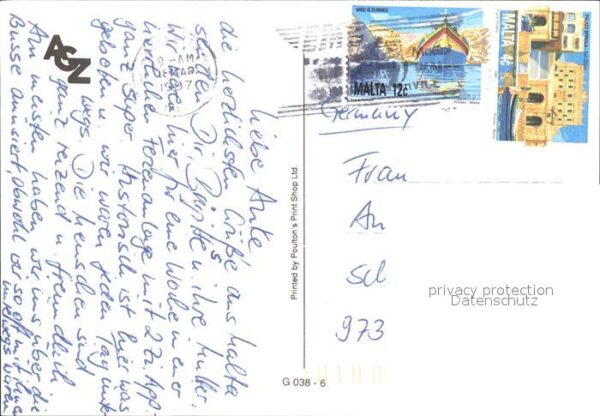 AGN
9 - AM
MAR
1997
MALTA 12c
MALTA 4c
Liebe Anke
die herzlichsten Grüße aus Malta
senden Dir Brigitte u. ihre Mutter.
Wir sind hier für eine Woche in einer
herrlichen Ferienanlage mit 2 Zi App.
ganz super. Historisch ist hier was
geboten u. wir waren jeden Tag unter
wegs. Die Menschen sind
ganz reizend u freundlich
Am meisten haben wir uns über die
Busse amüsiert, obwohl wir so oft mit ihnen
unterwegs waren
Germany
Frau
An
Sch
973
privacy protection
Datenschutz
Printed by Poulton's Print Shop Ltd.
G 038 - 6